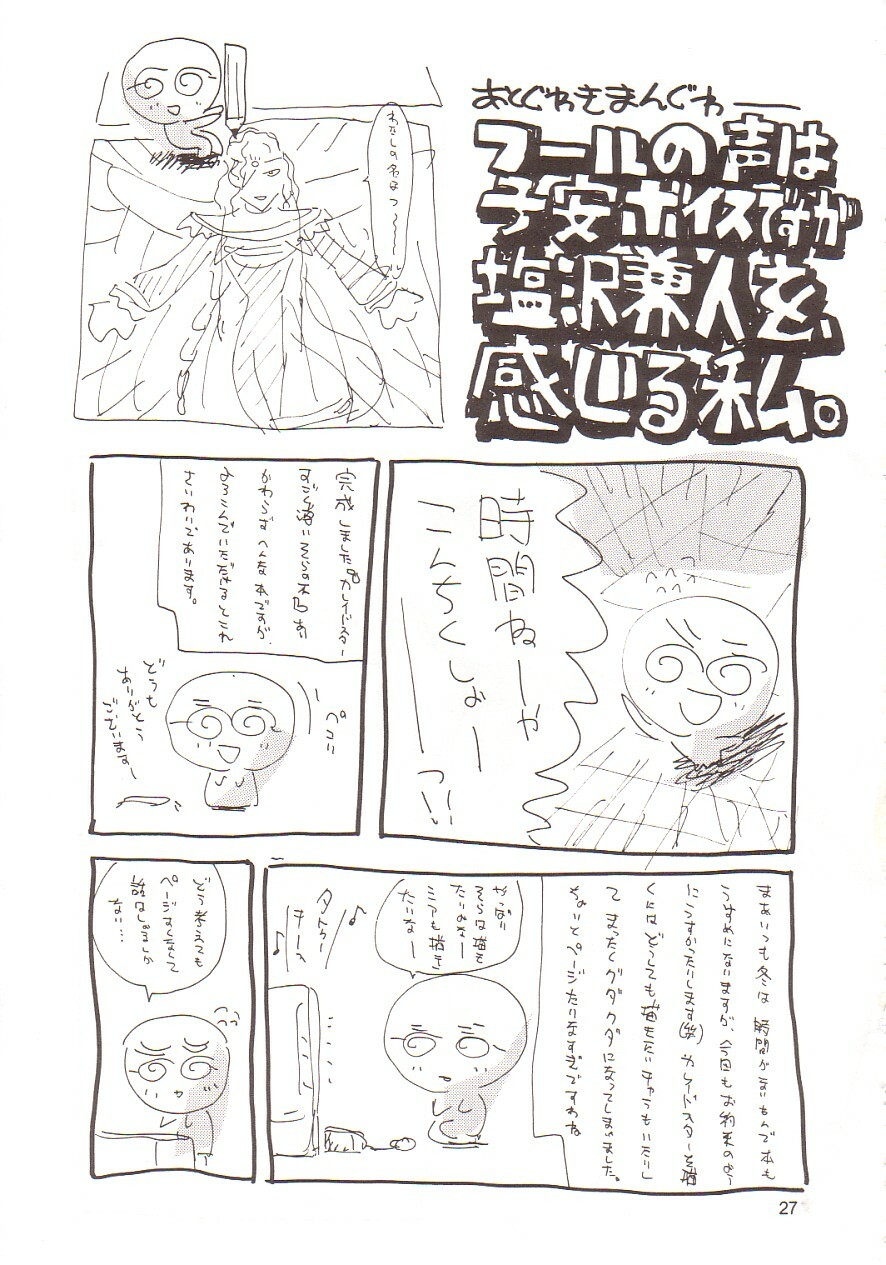 あとぐわきまんぐわ——
フールの声は
子安ボイスですが
塩沢兼人を、
感じる私。
わたしの名はっ〜〜〜
時間ねーや
こんちくしょーっ!!
完成しましたカレイドスター
すごく薄いそらの本
かわらずへんな本ですが、
よろこんでいただけるとこれ
さいわいであります。
ペコリ
どうも
ありがとう
ございますー
まあいつも冬は時間がないもんで本も
うすめになりますが、今回もお約束のよう
にうすかったりします(笑)カレイドスターを描
くにはどうしても描きたいキャラもいたりし
てまったくグダグダになってしまいました。
ちょいとページたりなすぎですわね
やっぱり
そらは描き
たいよなー
ミアも描き
たいなー
どう考えても
ページすくなくて
話なし
ない…
27